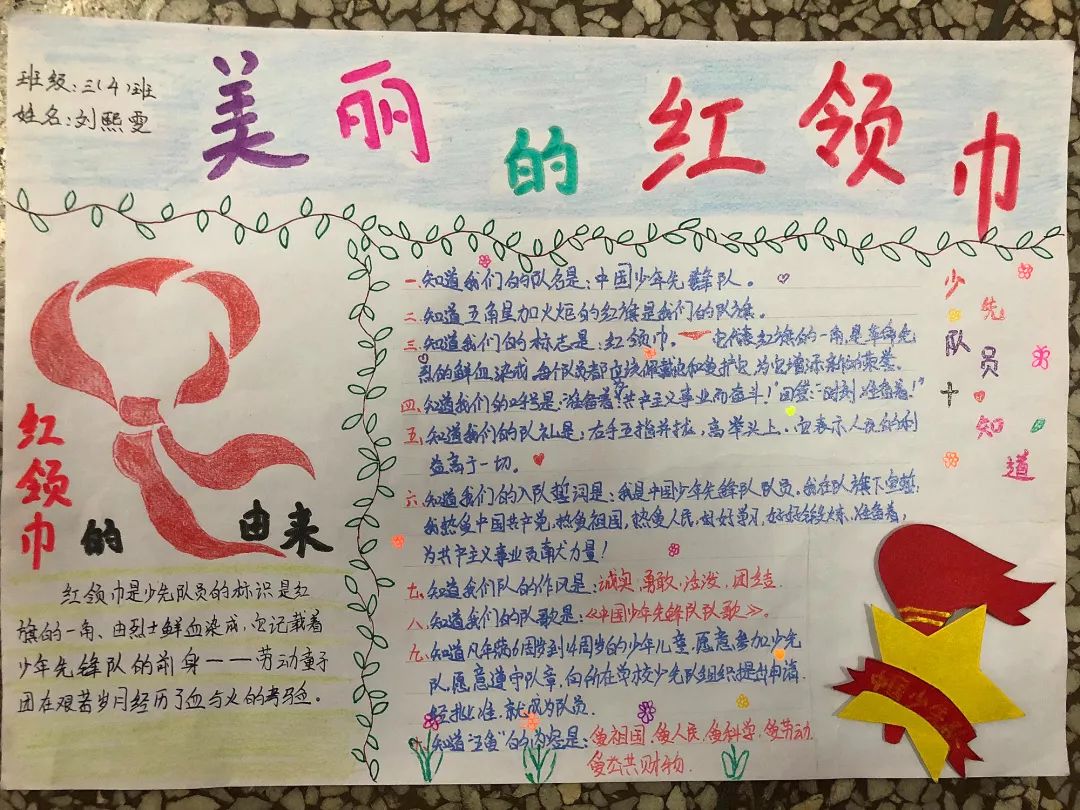 班级:三(4)班
姓名:刘熙雯
美丽的红领巾
红领巾的由来
红领巾是少先队员的标识是红
旗的一角、由烈士鲜血染成,它记载着
少年先锋队的前身——劳动童子
团在艰苦岁月经历了血与火的考验。
少先队员十知道
一、知道我们的队名是:中国少年先锋队。
二、知道五角星加火炬的红旗是我们的队旗。
三、知道我们的标志是:红领巾。它代表红旗的一角,是革命先
烈的鲜血染成,每个队员都应该佩戴它和爱护它,为它增添新的荣誉。
四、知道我们的呼号是:"准备着:共产主义事业而奋斗!"回答:"时刻准备着!"
五、知道我们的队礼是:右手五指并拢,高举头上。它表示人民的利
益高于一切。
六、知道我们的入队誓词是:我是中国少年先锋队队员。我在队旗下宣誓:
我热爱中国共产党,热爱祖国,热爱人民,好好学习,好好锻炼,准备着,
为共产主义事业贡献力量!
七、知道我们队的作风是:诚实、勇敢、活泼、团结.
八、知道我们的队歌是:《中国少年先锋队队歌》。
九、知道凡年满6周岁到14周岁的少年儿童,愿意参加少先
队,愿意遵守队章,向所在学校少先队组织提出申请.
经批准,就成为队员.
十、知道"五爱"的内容是:爱祖国、爱人民、爱科学、爱劳动
爱公共财物.